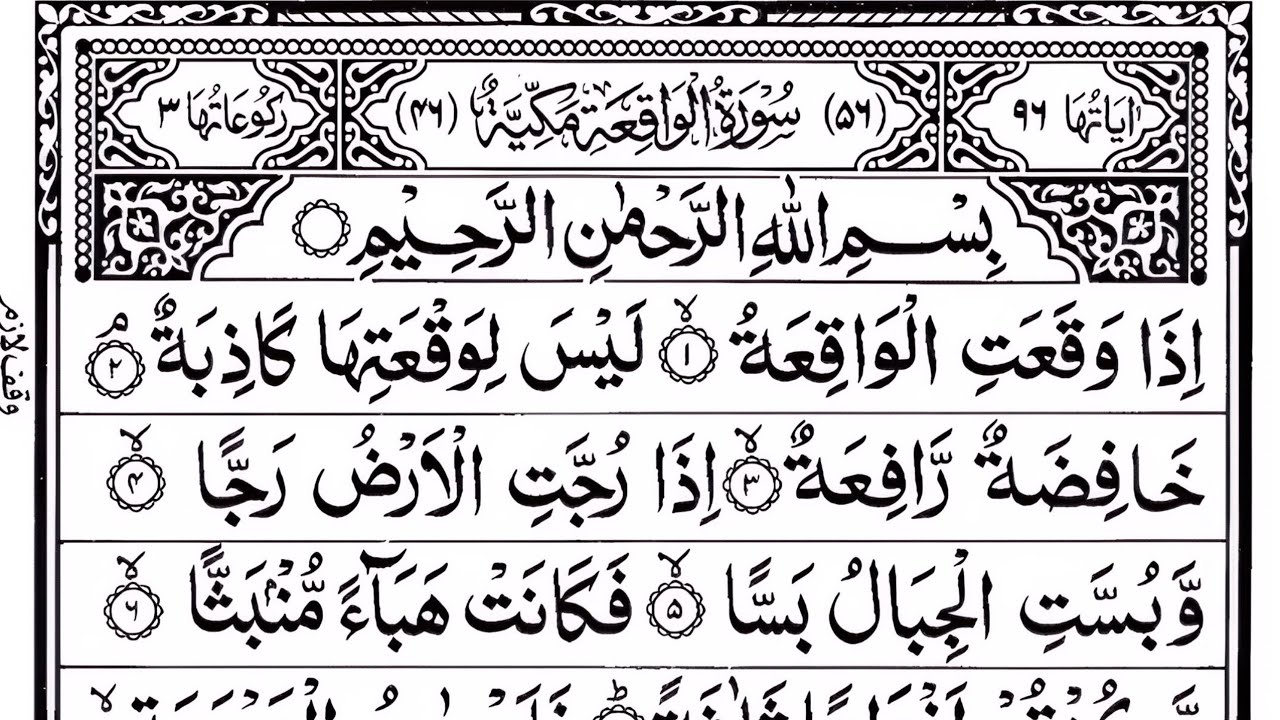 اٰيَاتُهَا ٩٦ (٥٦) سُوْرَةُ الْوَاقِعَةِ مَكِّيَّةٌ (٤٦) رُكُوْعَاتُهَا ٣
بِسْمِ اللّٰهِ الرَّحْمٰنِ الرَّحِيْمِ
اِذَا وَقَعَتِ الْوَاقِعَةُ ۙ﴿١﴾ لَيْسَ لِوَقْعَتِهَا كَاذِبَةٌ ۘ﴿٢﴾
خَافِضَةٌ رَّافِعَةٌ ۙ﴿٣﴾ اِذَا رُجَّتِ الْاَرْضُ رَجًّا ۙ﴿٤﴾
وَّبُسَّتِ الْجِبَالُ بَسًّا ۙ﴿٥﴾ فَكَانَتْ هَبَآءً مُّنْۢبَثًّا ۙ﴿٦﴾
وقف لازم